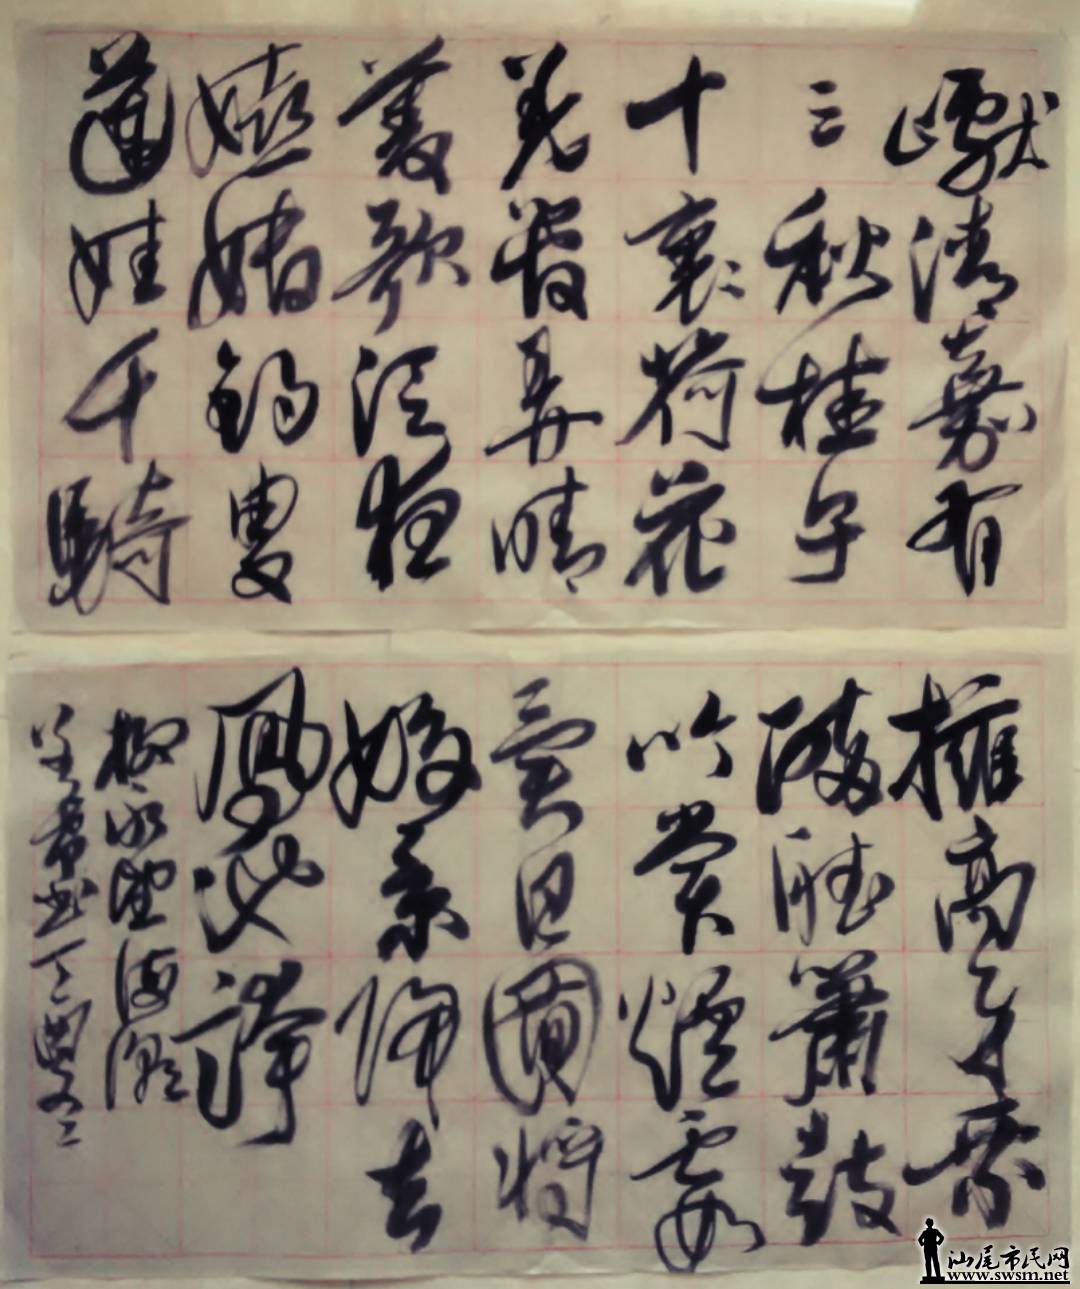 巘清嘉有
三秋桂子
十裏荷花
羌管弄晴
菱歌泛夜
嬉嬉釣叟
蓮娃千騎
擁高牙乘
醉聽簫鼓
吟賞煙霞
異日圖將
好景歸去
鳳池誇
柳永望海潮
書丁酉
汕尾市民网
www.swsm.net